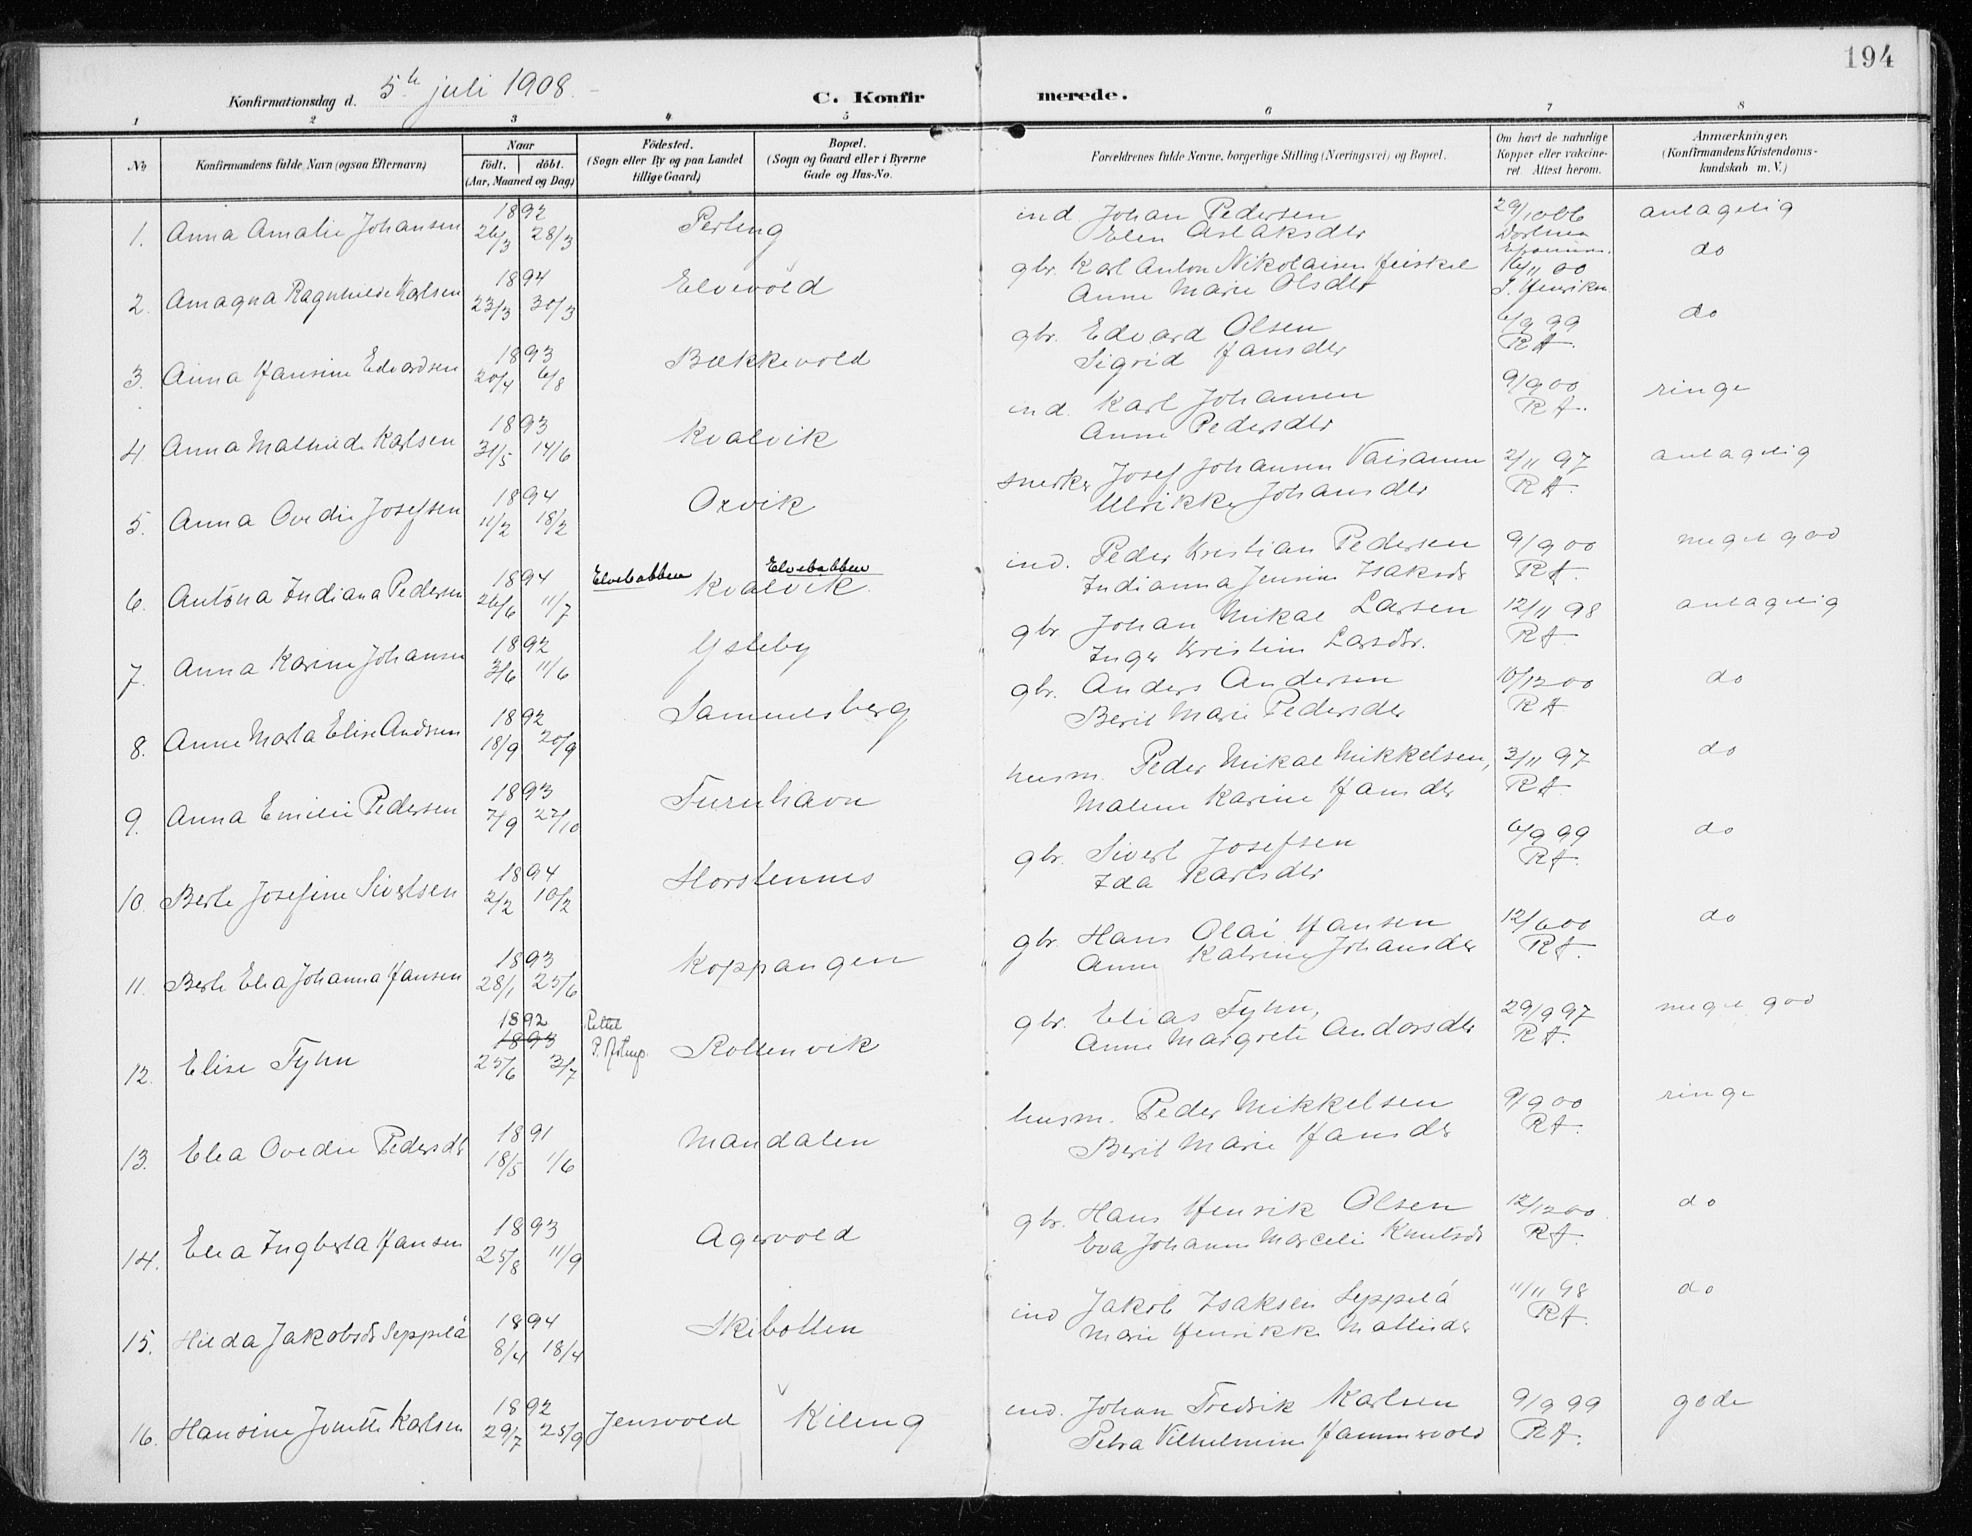 194
Konfirmationsdag d. 5te juli 1908.
C. Konfirmerede.
1 2 3 4 5 6 7 8
No
Konfirmandens fulde Navn (ogsaa Efternavn)
Naar
født. døbt.
(Aar, Maaned og Dag)
Fødested.
(Sogn eller By og paa Landet
tillige Gaard)
Bopæl.
(Sogn og Gaard eller i Byerne
Gade og Hus-No.
Forældrenes fulde Navne, borgerlige Stilling (Næringsvei) og Bopæl.
Om havt de naturlige
Kopper eller vakcine-
ret. Attest herom.
Anmærkninger.
(Konfirmandens Kristendoms-
kundskab m. V.)
1. Anna Amalie Johansen 1892 26/3 28/3 Perleng ind. Johan Pedersen antagelig
Elen Aslaksdtr
2. Amagna Ragnhilde Karlsen 1894 23/3 30/3 Elvevold gbr. Karl Anton Nikolaisen 16/11 00 do
Anne Marie Olsdtr J. Henriksen
3. Anna Hansine Edvardsen 1893 20/4 6/8 Bækkevold gbr. Edvard Olsen 6/9 99 do
Sigrid Hansdtr RA.
4. Anna Mathilde Karlsen 1893 31/5 14/6 Kvalvik ind. Karl Johansen 9/9 00 ringe
Anne Pedersdtr RA.
5. Anna Ovedie Josefsen 1894 11/2 18/2 Oxvik snerker Josef Johansen Vaisanen 2/11 97 antagelig
Ulrikke Johansdtr RA.
6. Antona Indiana Pedersen 1894 26/6 11/7 Elvebakken Kvalvik Elvebakken ind. Peder Kristian Pedersen 9/9 00 meget god
Indianna Jensine Isaksdt RA.
7. Anna Karine Johansen 1892 3/6 11/6 Ysteby gbr Johan Mikal Larsen 12/11 98 antagelig
Inger Kristine Larsdtr. RA.
8. Anne Marta Elise Andrsen 1892 18/9 20/9 Sammesberg gbr. Anders Andersen 10/12 00 do
Berit Marie Pedersdtr RA
9. Anna Emilie Pedersen 1893 7/9 22/10 Furuhavn husm. Peder Mikal Mikkelsen, 3/11 97 do
Malene Karine Hansdtr RA.
10. Berte Josefine Sivertsen 1894 2/2 10/2 Horstennes gbr. Sivert Josefsen 6/9 99 do
Ida Karlsdtr RA.
11. Berte Elea Johanna Hansen 1893 28/1 25/6 Koppangen gbr. Hans Olai Hansen 12/6 00 do
Anne Katrine Johansdtr RA.
12. Elise Fyhn 1892 1893 25/6 3/7 Rettet P. Astrup. Rottenvik gbr. Elias Fyhn, 29/9 97 meget god
Anne Margrete Andersdtr RA.
13. Elea Ovedie Pedersdt 1891 18/5 1/6 Mandalen husm. Peder Mikkelsen 9/9 00 ringe
Berit Marie Hansdtr RA.
14. Elea Ingberta Hansen 1893 25/8 11/9 Agervold gbr. Hans Henrik Olsen 12/12 00 do
Eva Johanne Marceli Knutsdt RA.
15. Hilda Jakobsdt Seppilä 1894 8/4 18/4 Skibotten ind Jakob Isaksen Seppilä 11/11 98 do
Marie Henrikke Mattisdtr RA.
16. Hansine Jonette Karlsen 1892 29/7 25/9 Jensvold Kileng ind. Johan Fredrik Karlsen 9/9 99 gode
Petra Vilhelmine Hammervold RA.